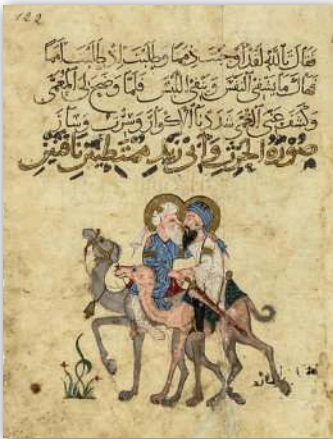 122
فقال تالله لقد اوجبت ذمما وطلبت اذ طلبت امما
فهاك ما يشفي النفس وينفي اللبس فلما وضح لي المعمى
وكشف عني الغمى شددنا الاكوار وسرت وسار
صورة الحرث وابي زيد ممتطيين ناقتين